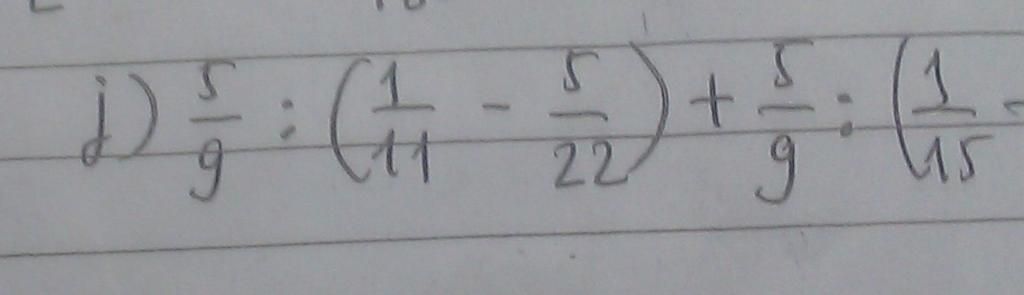 j) 5/9 : (1/11 - 5/22) + 5/9 : (1/15 -